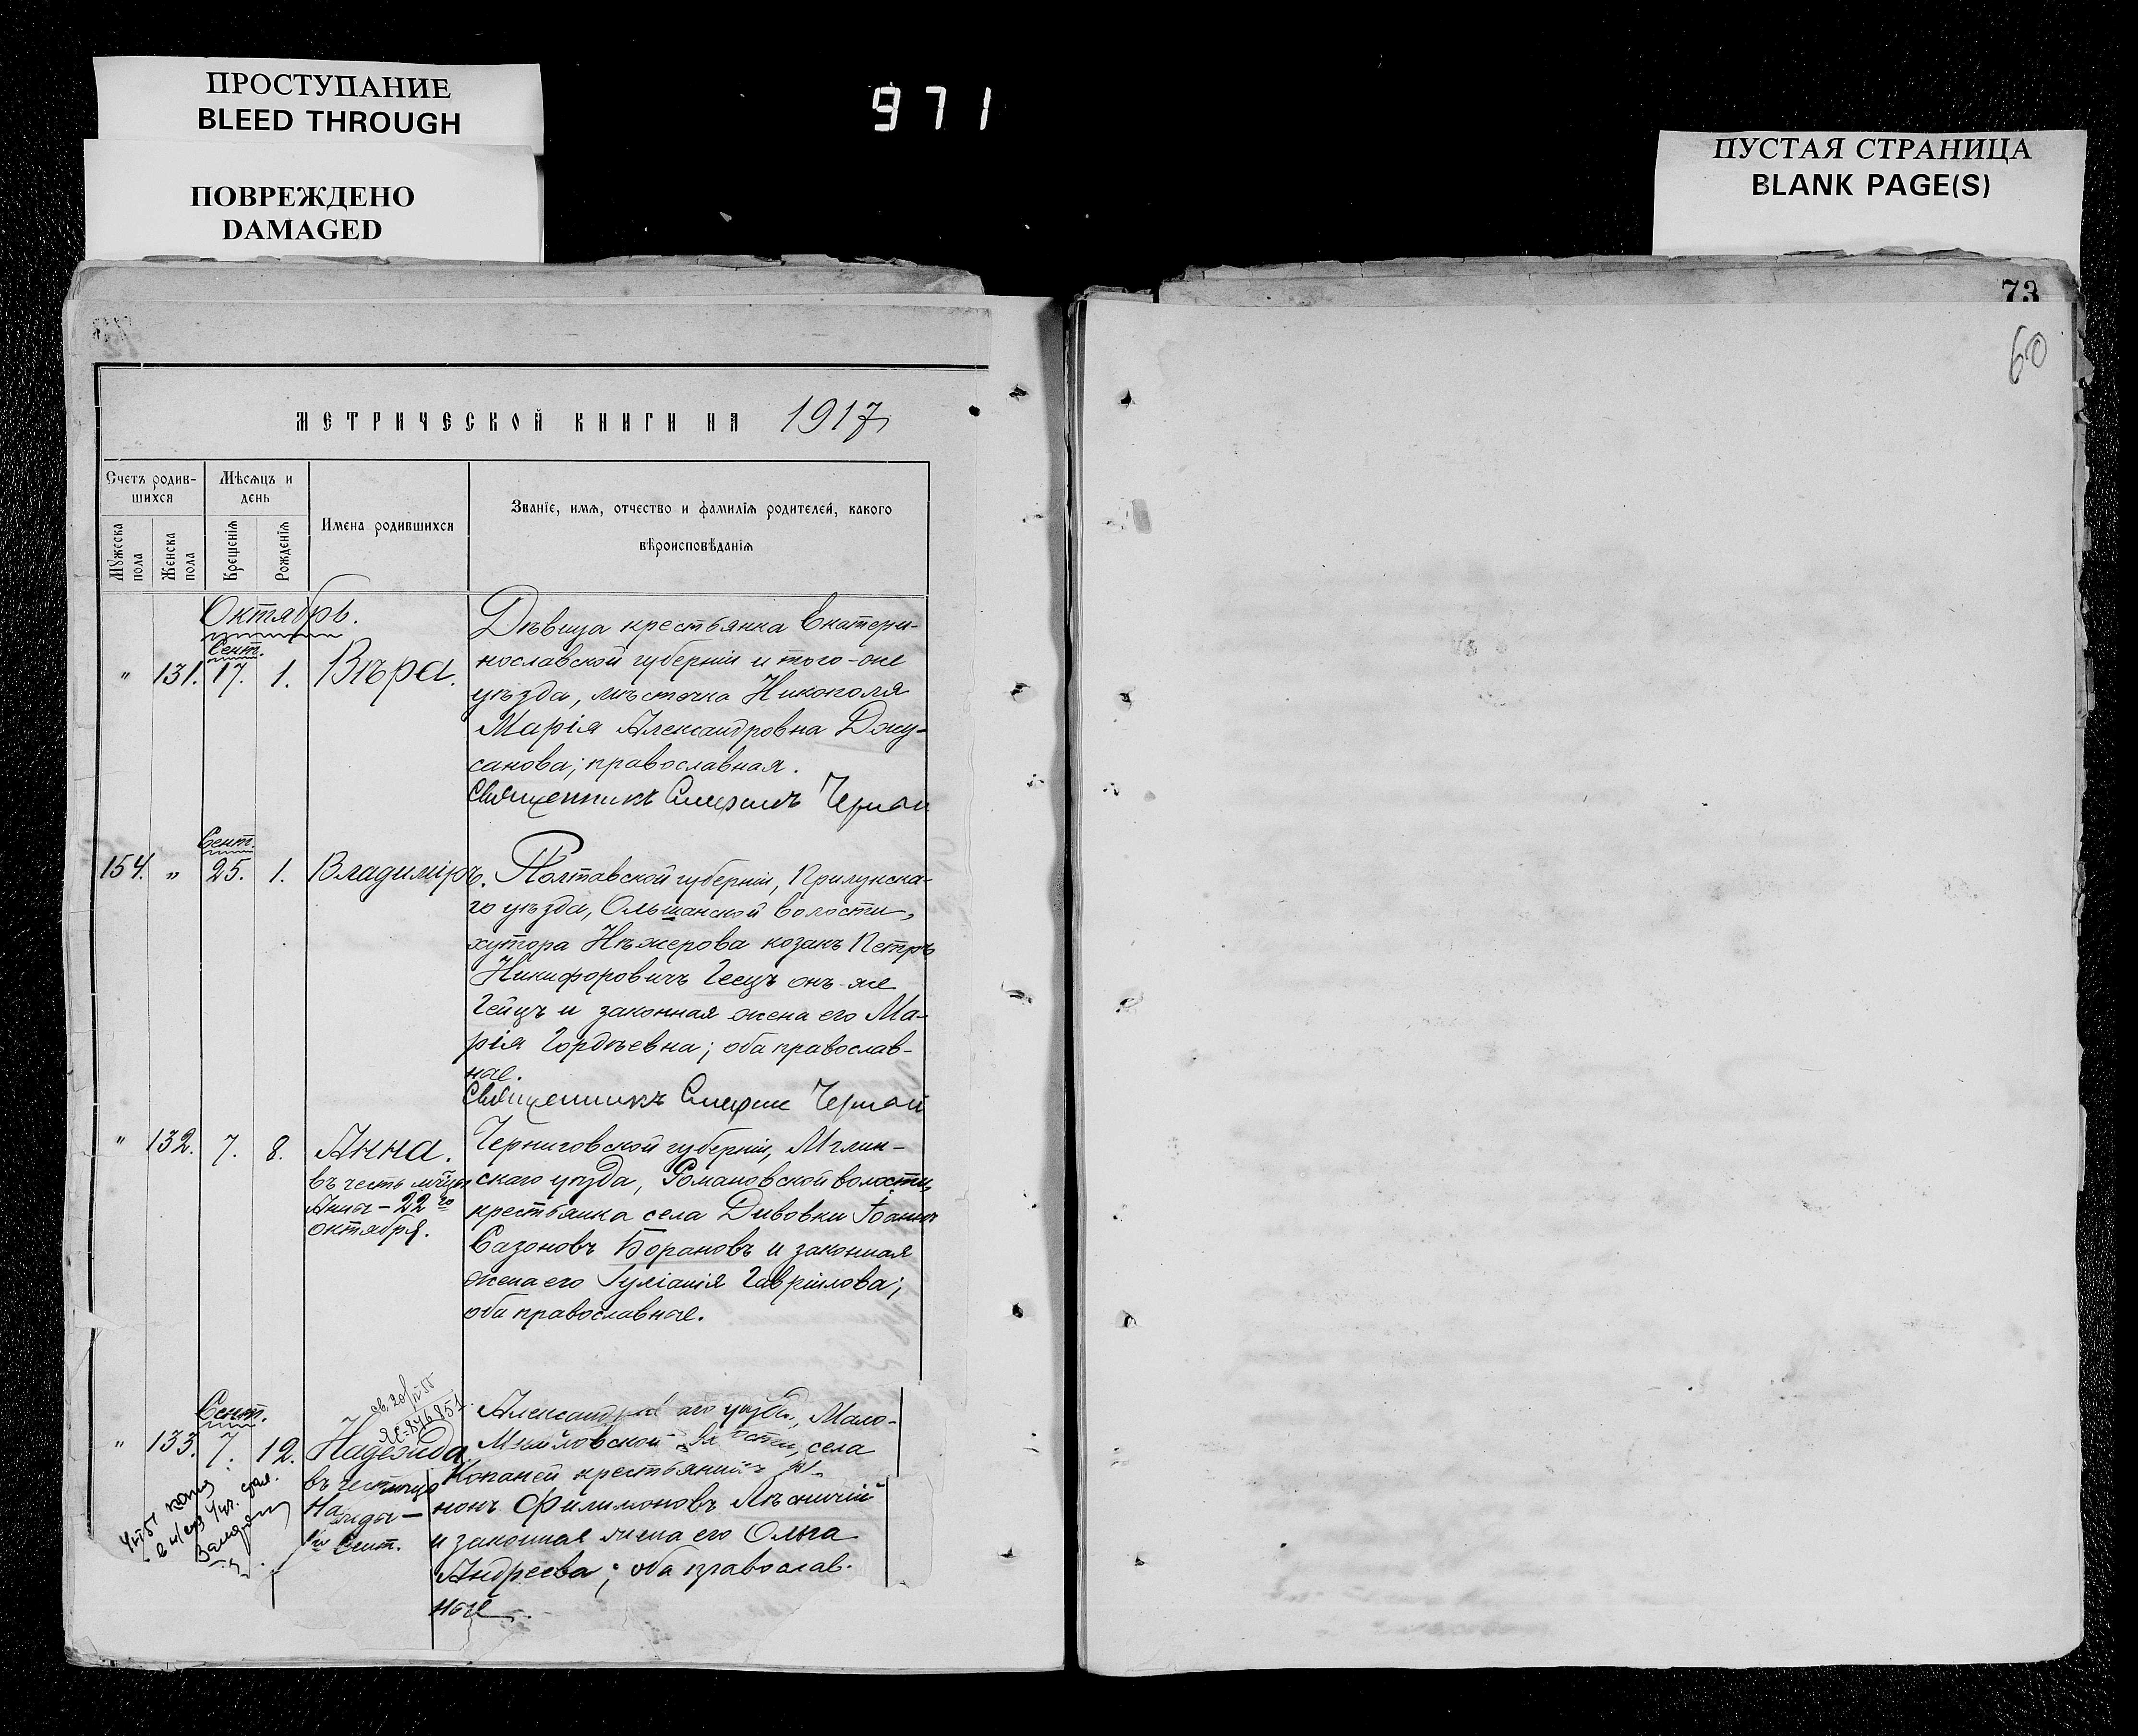 ПРОСТУПАНИЕ
BLEED THROUGH
ПОВРЕЖДЕНО
DAMAGED
971
ПУСТАЯ СТРАНИЦА
BLANK PAGE(S)
73
60
МЕТРИЧЕСКОЙ КНИГИ НА 1917
Счетъ родив-
шихся
Мужеска
пола
Женска
пола
Мѣсяцъ и
день
Крещенія
Рожденія
Имена родившихся
Званіе, имя, отчество и фамилія родителей, какого
вѣроисповѣданія
Октябрь.
Сент.
" 131. 17. 1. Вѣра.
Дѣвица крестьянка Екатери-
нославской губерніи и того-же
уѣзда, мѣстечка Никополя
Марія Александровна Джу-
санова; православная.
Священникъ
Сент.
154. " 25. 1. Владиміръ.
Полтавской губерніи, Прилукска-
го уѣзда, Ольшанской волости,
хутора Нѣжерова козакъ Петръ
Никифоровичъ Геецъ онъ-же
Гейцъ и законная жена его Ма-
рія Гордѣевна; оба православ-
ные.
Священникъ
" 132. 7. 8. Анна.
въ честь
Анны - 22го
октября.
Черниговской губерніи, Мглин-
скаго уѣзда, Романовской волости,
крестьянина села Дивовки Іоаннъ
Сазоновъ Борановъ и законная
жена его Іуліанія Гавріилова;
оба православные.
св. 20/
Сент.
" 133. 7. 12. Надежда
въ честь
Сент.
уѣзда, Мало-
села
Копаней крестьянинъ
нонъ Филимоновъ Лѣсничій
и законная жена его Ольга
Андреева; оба православ-
ные.